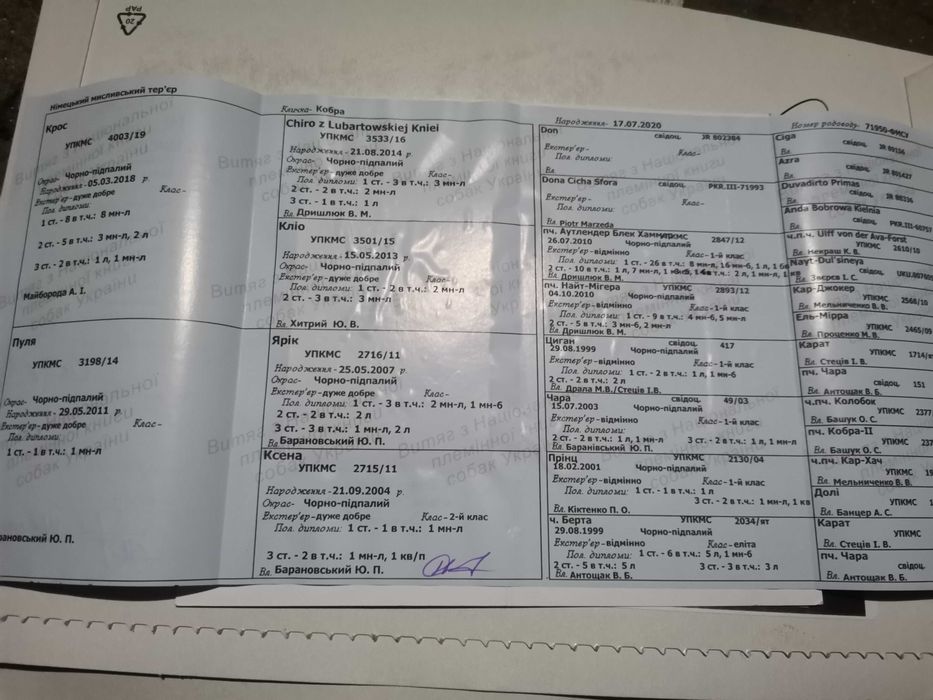 20
PAP
Німецький мисливський тер'єр
Кличка- Кобра
Народження- 17.07.2020
Номер родоводу- 71950-ФМСУ
Крос
УПКМС 4003/19
Окрас- Чорно-підпалий
Народження- 05.03.2018 р.
Екстер'єр- дуже добре Клас-
Пол. дипломи:
1 ст. - 8 в т.ч.: 8 мн-л
2 ст. - 5 в т.ч.: 3 мн-л, 2 л
3 ст. - 2 в т.ч.: 1 л, 1 мн-л
Майборода А. І.
Пуля
УПКМС 3198/14
Окрас- Чорно-підпалий
Народження- 29.05.2011 р.
Екстер'єр-дуже добре Клас-
Пол. дипломи:
1 ст. - 1 в т.ч.: 1 мн-л
Барановський Ю. П.
Chiro z Lubartowskiej Kniei
УПКМС 3533/16
Народження -21.08.2014 р.
Окрас- Чорно-підпалий
Екстер'єр-дуже добре Клас-
Пол. дипломи: 1 ст. - 3 в т.ч.: 3 мн-л
2 ст. - 2 в т.ч.: 2 мн-л
3 ст. - 1 в т.ч.: 1 л
Вл. Дришлюк В. М.
Кліо
УПКМС 3501/15
Народження -15.05.2013 р.
Окрас- Чорно-підпалий
Екстер'єр-дуже добре Клас-
Пол. дипломи: 1 ст. - 2 в т.ч.: 2 мн-л
2 ст. - 3 в т.ч.: 3 мн-л
Вл. Хитрий Ю. В.
Ярік
УПКМС 2716/11
Народження -25.05.2007 р.
Окрас- Чорно-підпалий
Екстер'єр-дуже добре Клас-
Пол. дипломи: 1 ст. - 3 в т.ч.: 2 мн-л, 1 мн-б
2 ст. - 2 в т.ч.: 2 л
3 ст. - 3 в т.ч.: 1 мн-л, 2 л
Вл Барановський Ю. П.
Ксена
УПКМС 2715/11
Народження -21.09.2004 р.
Окрас- Чорно-підпалий
Екстер'єр-дуже добре Клас-2-й клас
Пол. дипломи: 1 ст. - 1 в т.ч.: 1 мн-л
3 ст. - 2 в т.ч.: 1 мн-л, 1 кв/п
Вл. Барановський Ю. П.
Don
свідоц. JR 802384
Екстер'єр- Клас-
Пол. дипломи:
Вл.
Dona Cicha Sfora свідоц. PKR.III-71993
Екстер'єр- Клас-
Пол. дипломи:
Вл. Piotr Marzeda
пч. Аутлендер Блек Хаммер УПКМС 2847/12
26.07.2010 Чорно-підпалий
Екстер'єр-відмінно Клас-1-й клас
Пол. дипломи: 1 ст. - 26 в т.ч.: 8 мн-л, 16 мн-б, 1 л, 1 б
2 ст. - 10 в т.ч.: 1 л, 7 мн-л
Вл. Дришлюк В. М.
пч. Найт-Мігера УПКМС 2893/12
04.10.2010 Чорно-підпалий
Екстер'єр-відмінно Клас-1-й клас
Пол. дипломи: 1 ст. - 9 в т.ч.: 4 мн-б, 5 мн-л
2 ст. - 5 в т.ч.: 3 мн-б, 2 мн-л
Вл. Дришлюк В. М.
Циган свідоц. 417
29.08.1999 Чорно-підпалий
Екстер'єр-відмінно Клас-1-й клас
Пол. дипломи: 1 ст. - 2 в т.ч.: 1 л, 1 мн-б
2 ст. - 2 в т.ч.: 2 л
Вл. Драла М.В./Стеців І.В.
Чара свідоц. 49/03
15.07.2003 Чорно-підпалий
Екстер'єр-відмінно Клас-1-й клас
Пол. дипломи:
2 ст. - 2 в т.ч.: 1 л, 1 мн-л 3 ст. - 2 в т.ч.: 1 л, 1 мн-л
Вл. Баранівський Ю. П.
Прінц УПКМС 2130/04
18.02.2001 Чорно-підпалий
Екстер'єр-відмінно Клас-1-й клас
Пол. дипломи: 1 ст. - 1 в т.ч.: 1 л
3 ст. - 2 в т.ч.: 1 мн-л, 1 кв
Вл. Кіктенко П. О.
ч. Берта УПКМС 2034/ят
29.08.1999 Чорно-підпалий
Екстер'єр-відмінно Клас-еліта
Пол. дипломи: 1 ст. - 6 в т.ч.: 5 л, 1 мн-б
2 ст. - 5 в т.ч.: 5 л 3 ст. - 3 в т.ч.: 3 л
Вл. Антощак В. Б.
Ciga
свідоц. JR
Вл.
Azra
свідоц.
Вл.
Duvadirto Primas
свідоц. JR
Вл.
Anda Bobrowa Kielnia
свідоц. PKR.III-60757
Вл.
ч.п.ч. Uiff von der Ava-Forst
УПКМС 2610/10
Вл. Некраш К. В.
Nayt-Dul'sineya
свідоц.
Вл. Звєрєв І. С.
Кар-Джокер
УПКМС 2568/10
Вл. Мельниченко В. В.
Ель-Мірра
УПКМС 2465/09
Вл. Проценко М. В.
Карат
УПКМС 1714/
Вл. Стеців І. В.
пч. Чара
свідоц. 151
Вл. Антощак В. Б.
ч.пч. Колобок
УПКМС 2377
Вл. Башук О. С.
пч. Кобра-II
УПКМС 237
Вл. Башук О. С.
ч.пч. Кар-Хач
УПКМС
Вл. Мельниченко В. В.
Долі
УПКМС
Вл. Банцер А. С.
Карат
УПКМС
Вл. Стеців І. В.
пч. Чара
свідоц.
Вл. Антощак В. Б.
Витяг з Національної
племінної книги
собак України